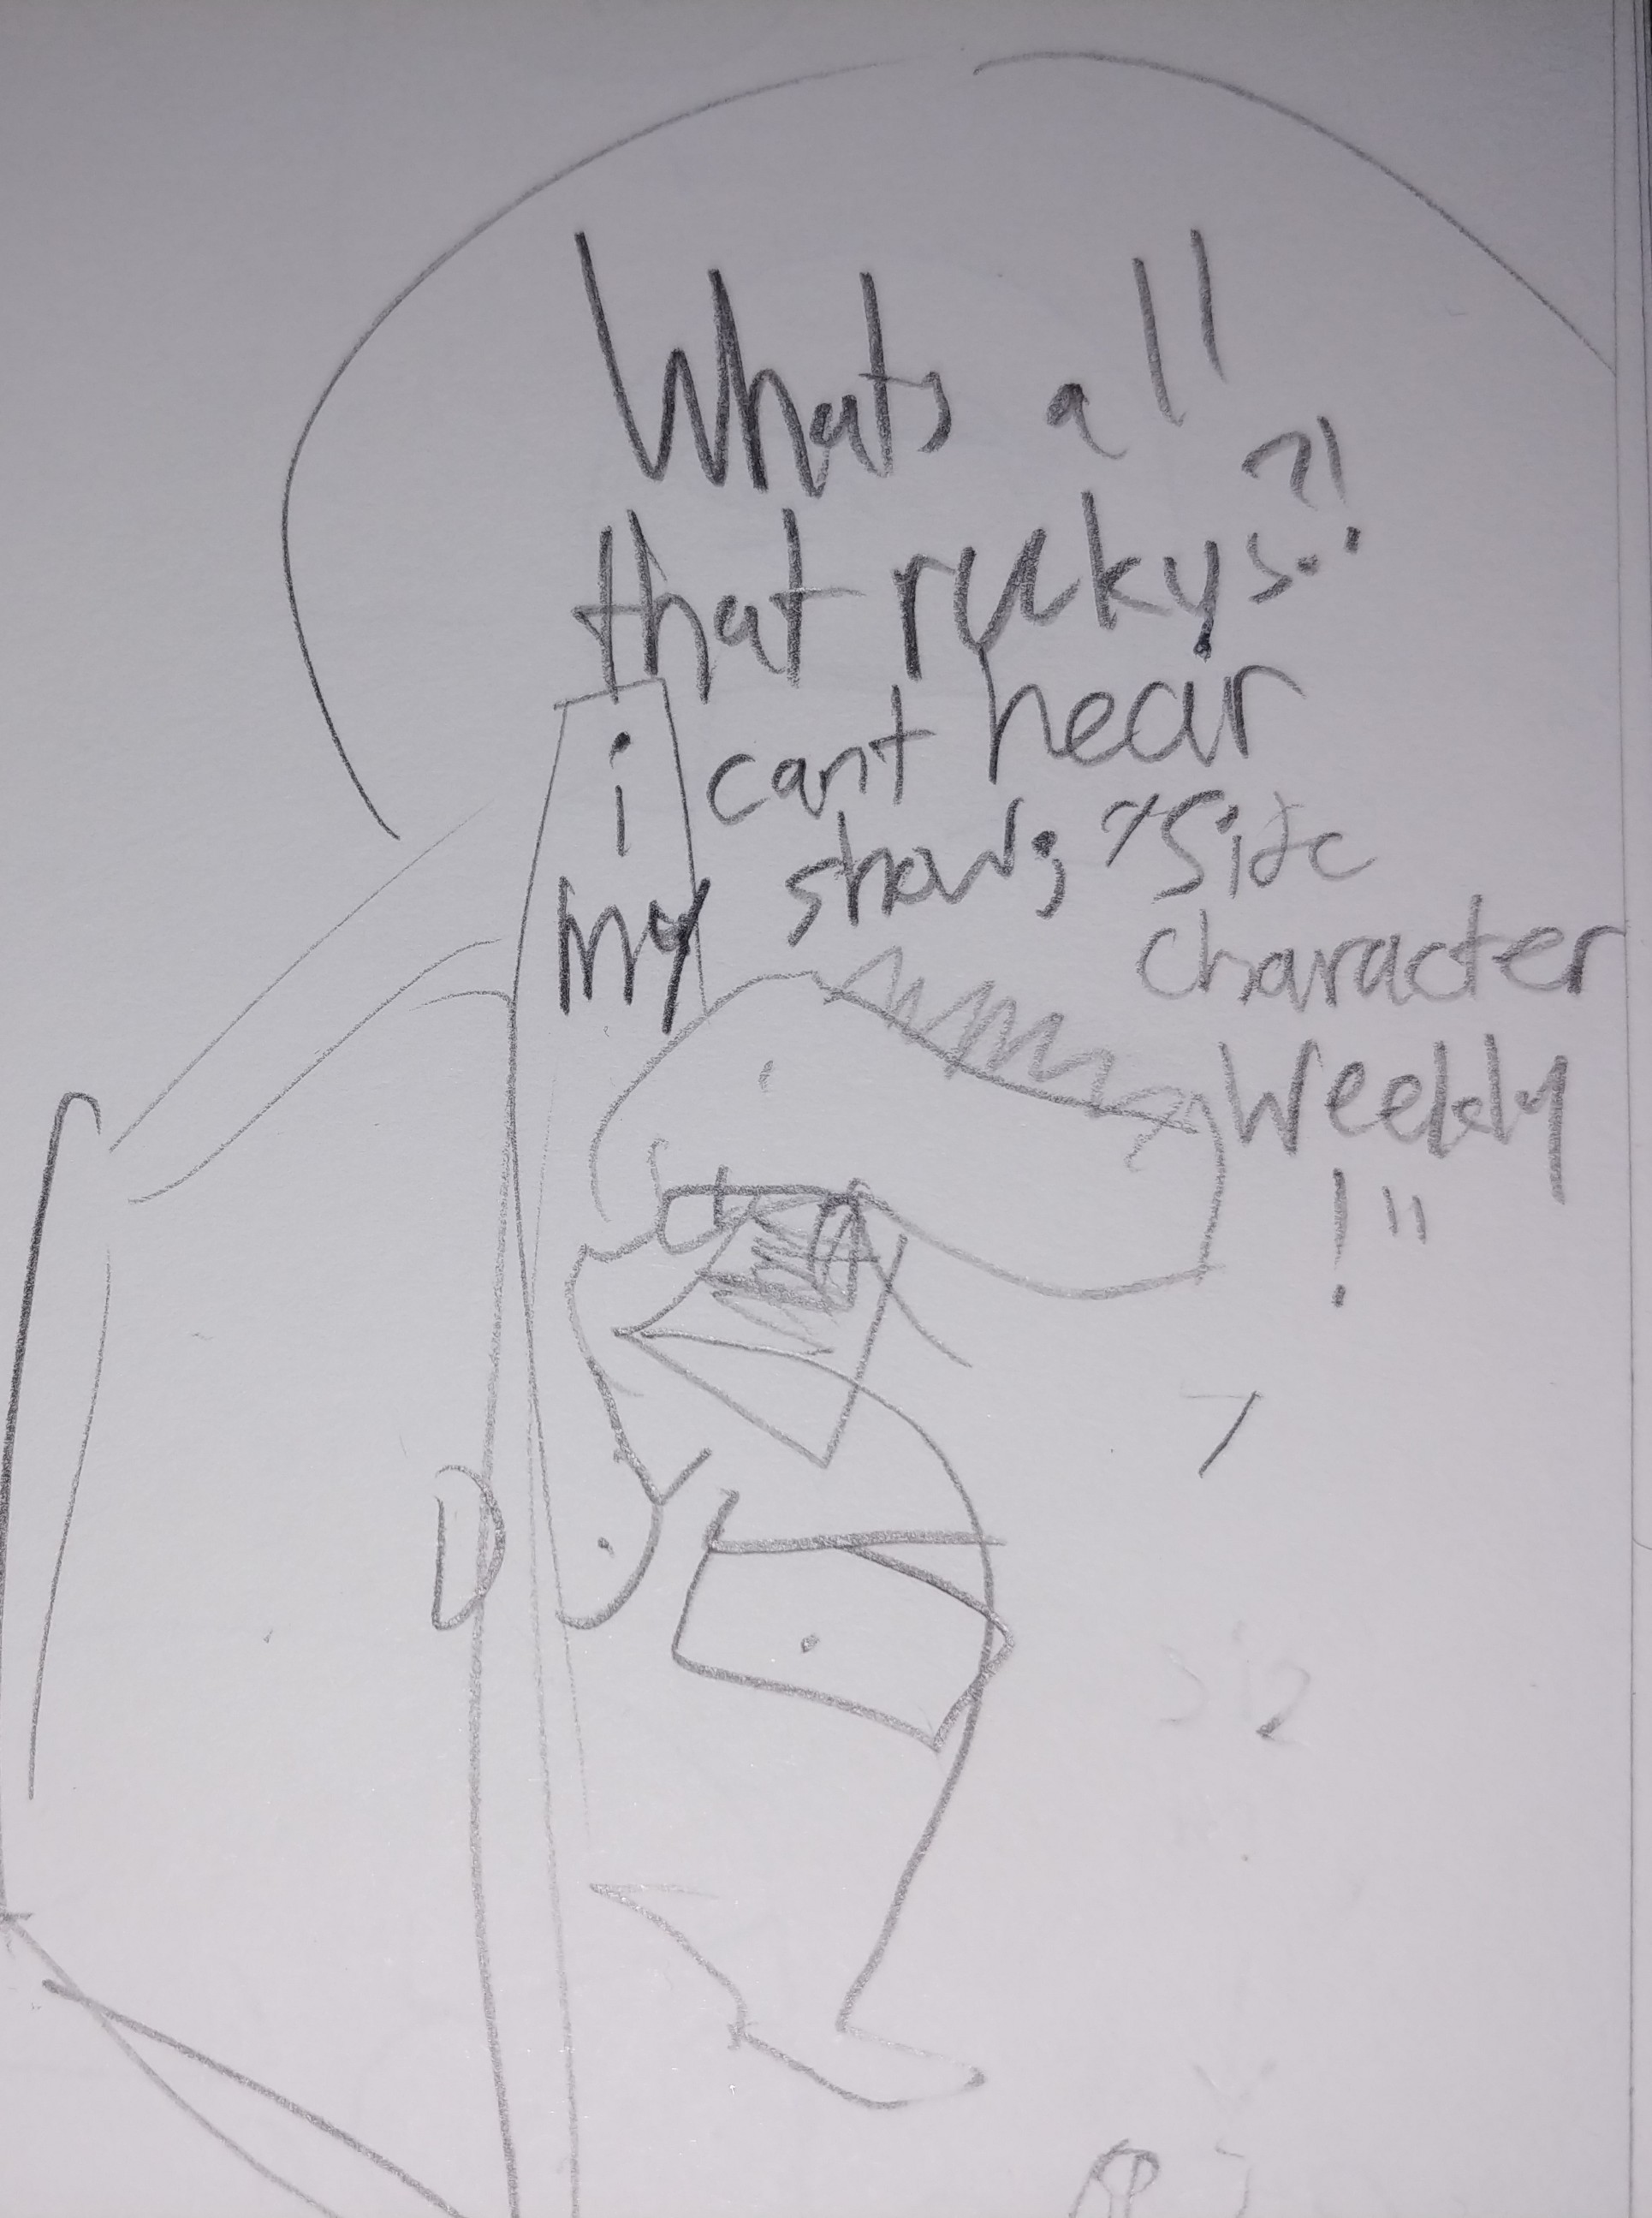 Whats all
that ruckys?!
i cant hear
my shows, "Side
character
Weekly
!"